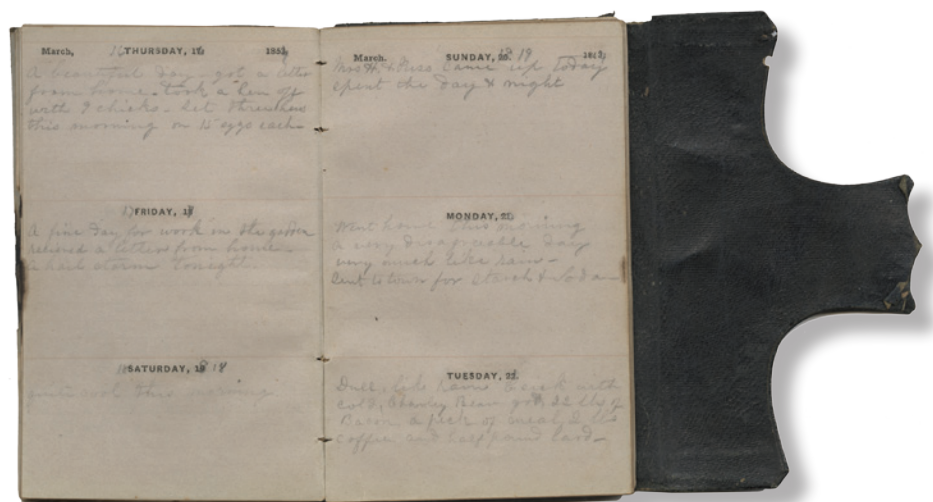 March, 16 THURSDAY, 17 185
A beautiful day – got a letter
from home. Took a hen off
with 9 chicks. Set three hens
this morning on 15 eggs each –
17 FRIDAY, 18
A fine day for work in the garden
recieved a letter from home –
a hard storm tonight.
18 SATURDAY, 19
quite cool this morning
March. SUNDAY, 19 186
Mrs H. & came up today
spent the day & night
MONDAY, 21
Went home this morning
a very disagreeable day
very much like rain –
Sent to town for starch & soda –
TUESDAY, 22
Dull sick with
cold, Charley Bean got 22 lbs of
Bacon a peck of meal 2 lbs
coffee and half pound lard –